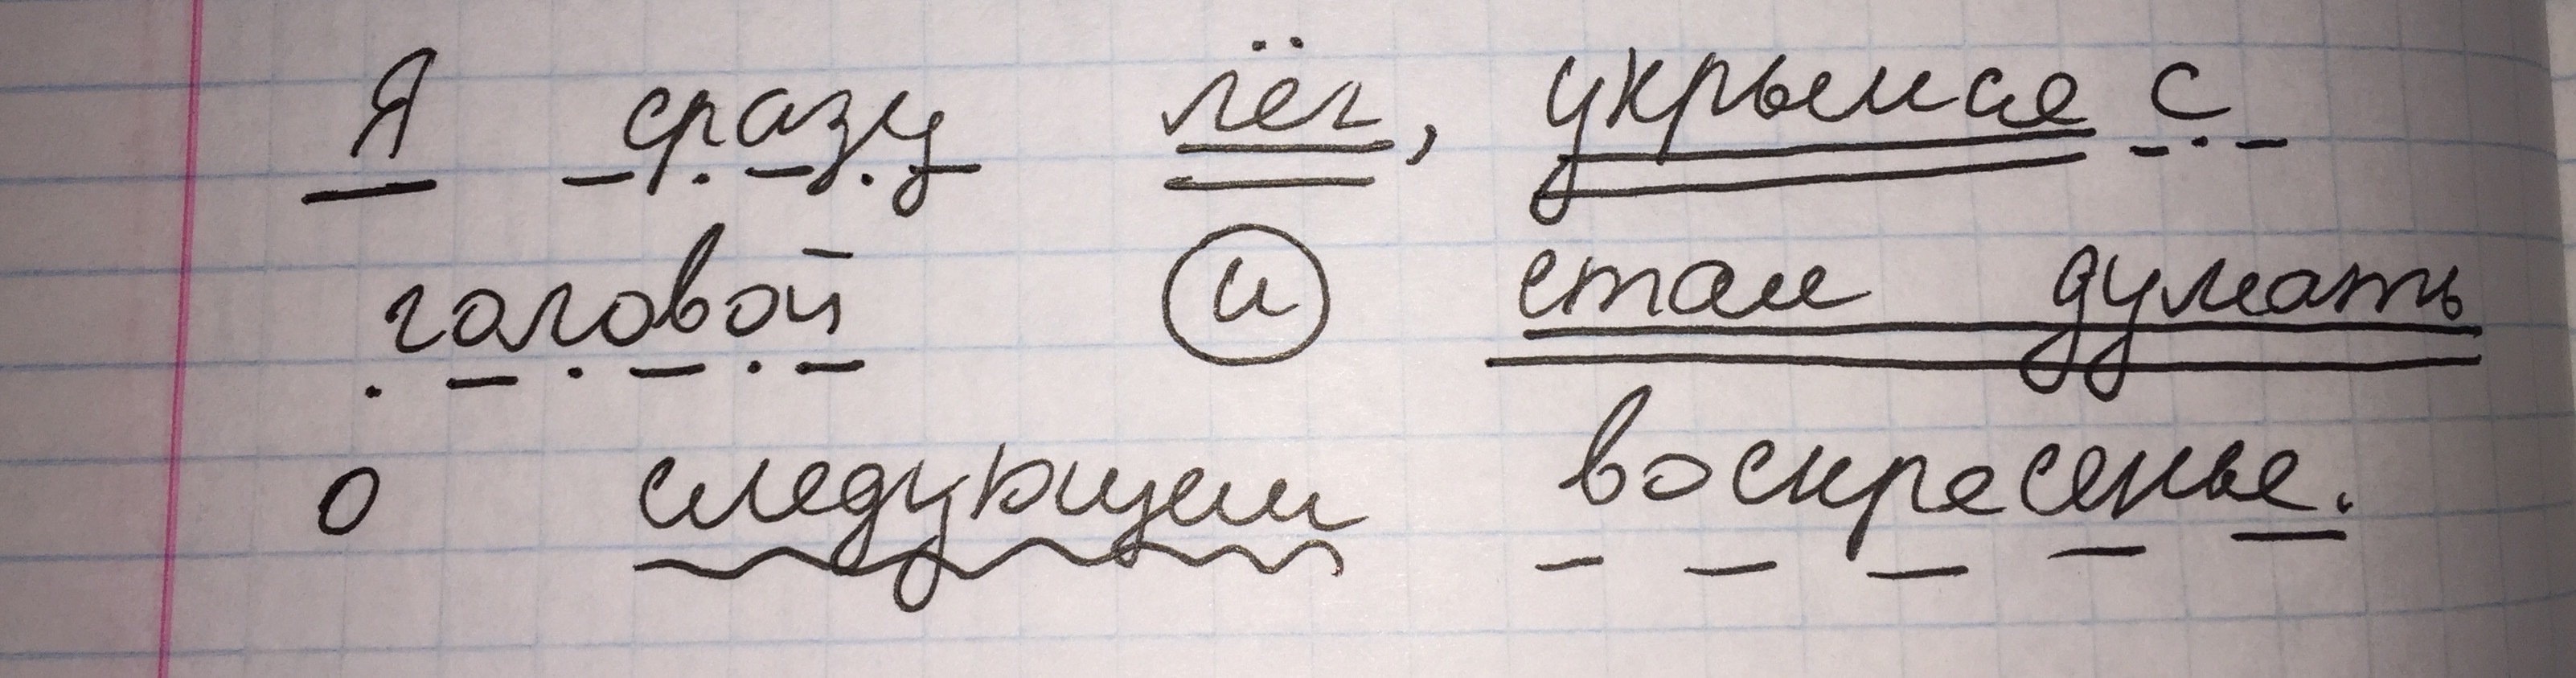 Я сразу лёг, укрылся с
головой и стал думать
о следующем воскресенье.